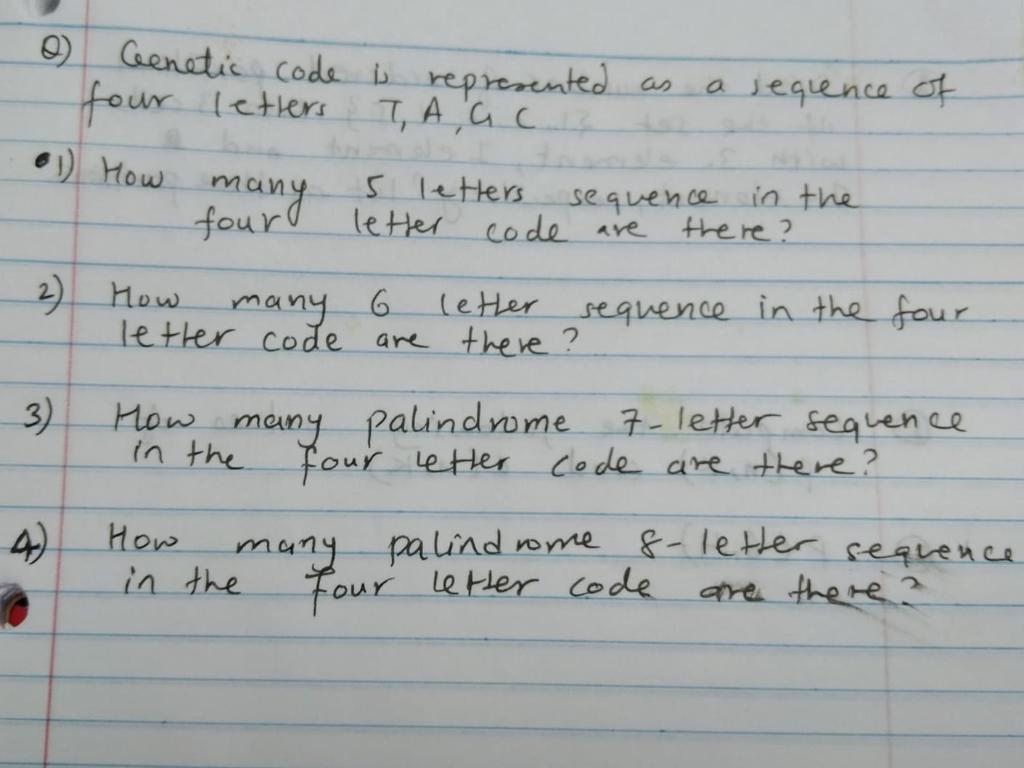 Q) Genetic code is represented as a sequence of
four letters T, A, G C
1) How many 5 letters sequence in the
four letter code are there?
2) How many 6 letter sequence in the four
letter code are there?
3) How many palindrome 7-letter sequence
in the four letter code are there?
4) How many palindrome 8-letter sequence
in the four letter code are there?